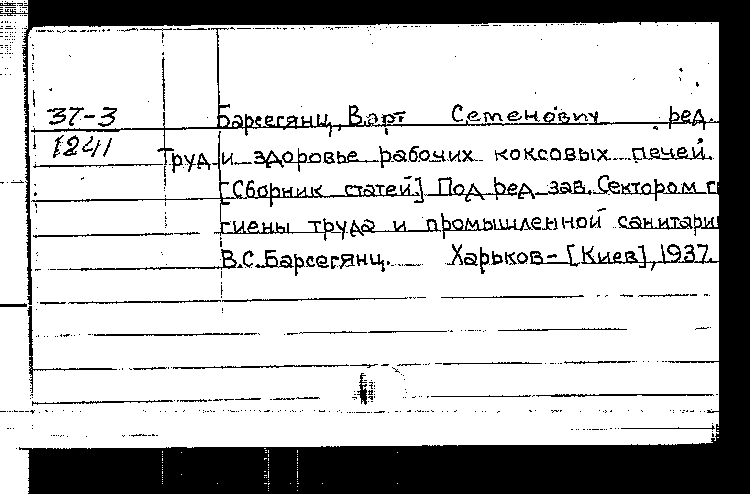 37-3 Барсегянц, Варт Семенович ред.
1241 Труд и здоровье рабочих коксовых печей.
[Сборник статей.] Под ред. зав. Сектором ги
гиены труда и промышленной санитарии
В.С.Барсегянц. Харьков-[Киев], 1937.